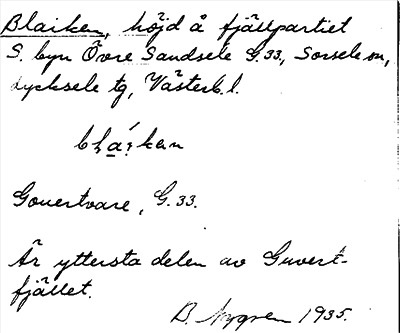 Blaiken, höjd å fjällpartiet
S. byn Övre Sandsele G.33, Sorsele sn,
Lycksele tg, Västerb.l.
Gouertvare, G.33.
Är yttersta delen av Guvert-
fjället.
B. Nygren 1935.